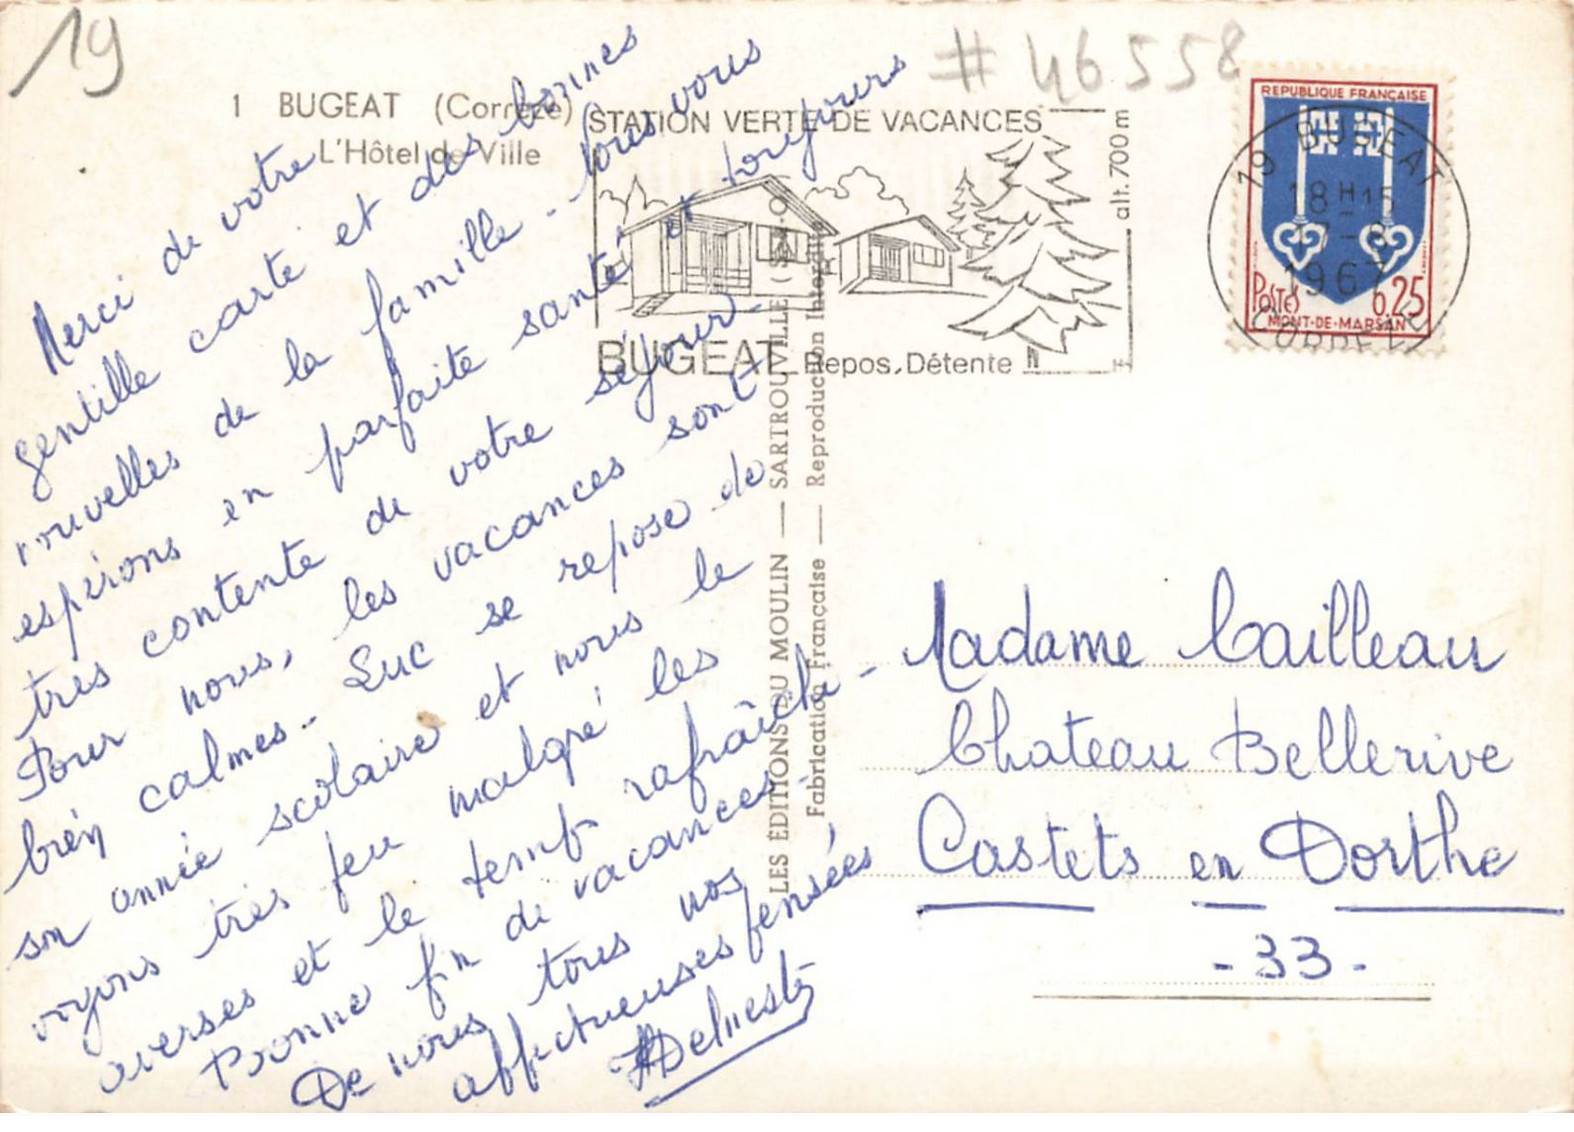 19
# 46558
1 BUGEAT (Corrèze)
L'Hôtel de Ville
Merci de votre
gentille carte et des bonnes
nouvelles de la famille - tous vous
espérons en parfaite santé et toujours
très contente de votre séjour.
Pour nous, les vacances sont
bien calmes - Luc se repose de
son année scolaire et nous le
voyons très peu malgré les
averses et le temps rafraîchi -
Bonne fin de vacances.
De nous tous nos
affectueuses pensées
STATION VERTE DE VACANCES
alt. 700 m
BUGEAT Repos, Détente
LES ÉDITIONS DU MOULIN — SARTROUVILLE (S.-&-O.)
Fabrication Française — Reproduction Interdite
REPUBLIQUE FRANÇAISE
POSTES 0.25
MONT-DE-MARSAN
19 BUGEAT
18H15
1967
CORREZE
Madame Cailleau
Chateau Bellerive
Castets en Dorthe
- 33 -